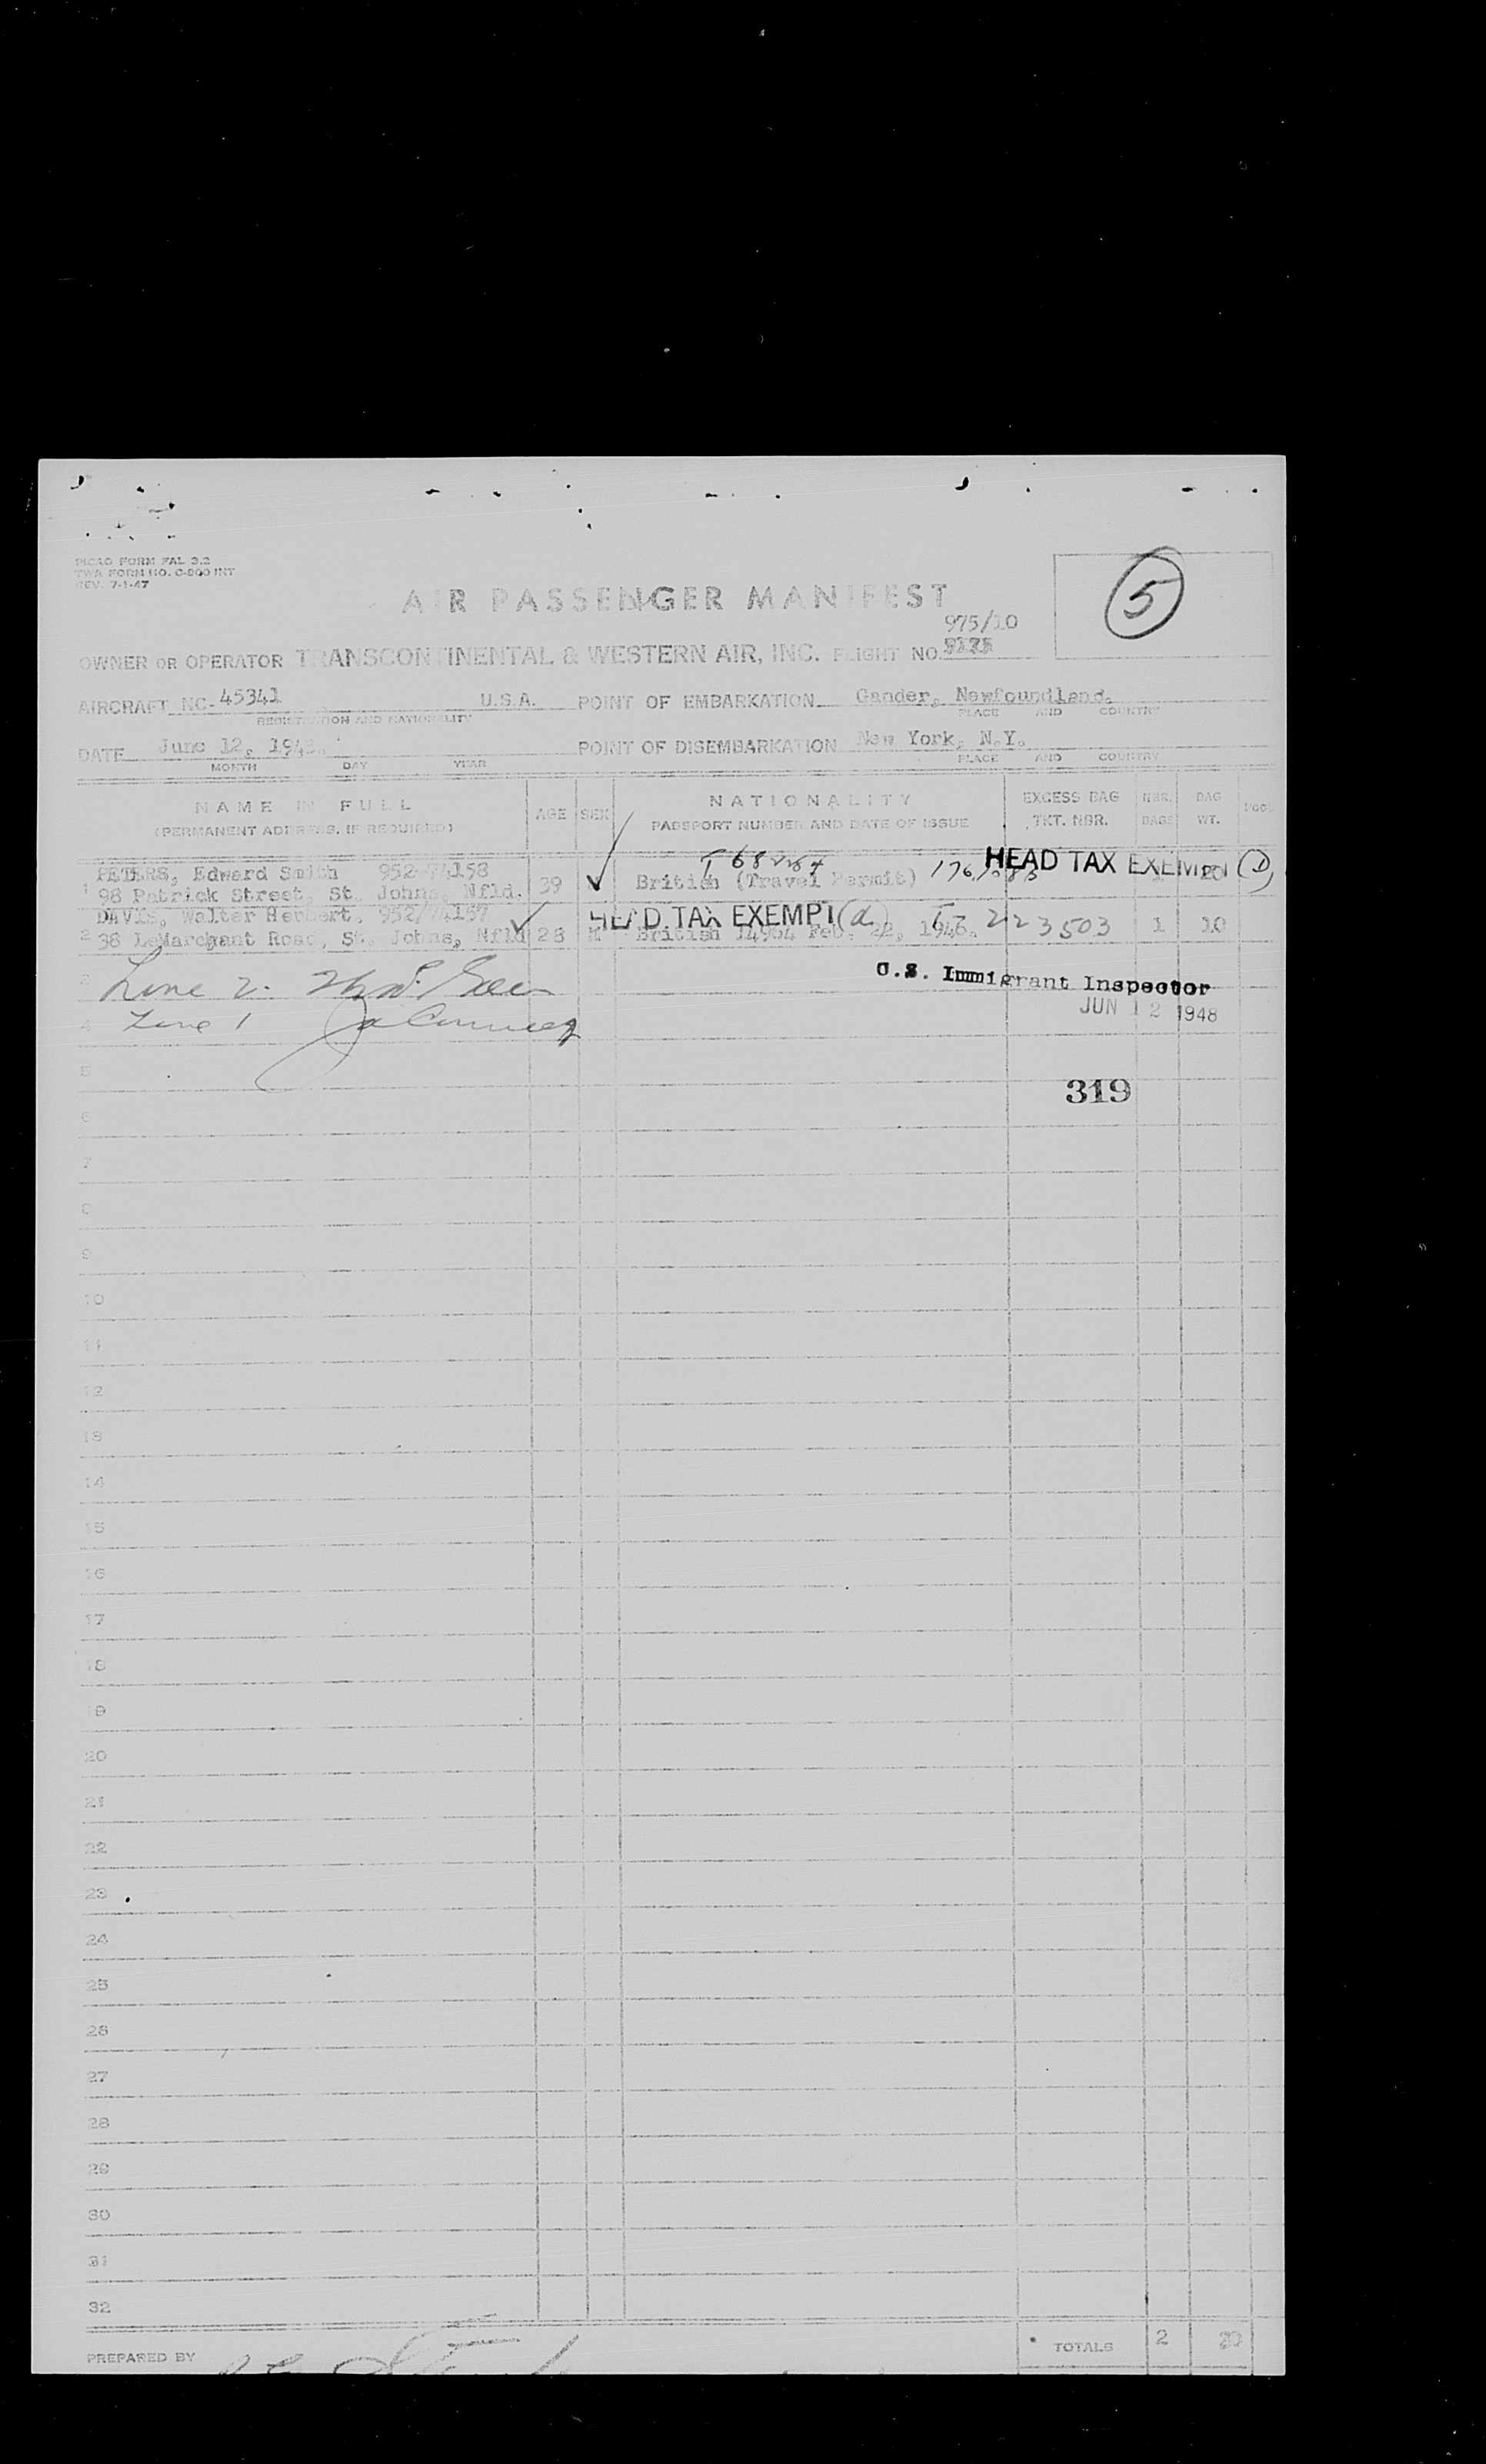 PICAO FORM FAL 3.2
TWA FORM NO. C-900 INT
REV. 7-1-47
5
AIR PASSENGER MANIFEST
975/10
OWNER OR OPERATOR TRANSCONTINENTAL & WESTERN AIR, INC. FLIGHT NO.
AIRCRAFT NC-45341 U.S.A. POINT OF EMBARKATION Gander, Newfoundland.
REGISTRATION AND NATIONALITY PLACE AND COUNTRY
DATE June 12, 1948. POINT OF DISEMBARKATION New York, N.Y.
MONTH DAY YEAR PLACE AND COUNTRY
NAME IN FULL AGE SEX NATIONALITY EXCESS BAG NBR. BAG
(PERMANENT ADDRESS, IF REQUIRED) PASSPORT NUMBER AND DATE OF ISSUE TKT. NBR. BAGS WT.
PETERS, Edward Smith 952/74158 HEAD TAX EXEMPT (d)
1 98 Patrick Street, St. Johns, Nfld. 39 British (Travel Permit) 1 10
DAVIS, Walter Herbert. 952/74157 HEAD TAX EXEMPT (d) T- 223503
2 38 LeMarchant Road, St. Johns, Nfld 28 M British 14964 Feb. 22, 1946. 1 10
3 Line 2. U.S. Immigrant Inspector
4 Line 1 JUN 12 1948
5
319
6
7
8
9
10
11
12
13
14
15
16
17
18
19
20
21
22
23
24
25
26
27
28
29
30
31
32
PREPARED BY TOTALS 2 20